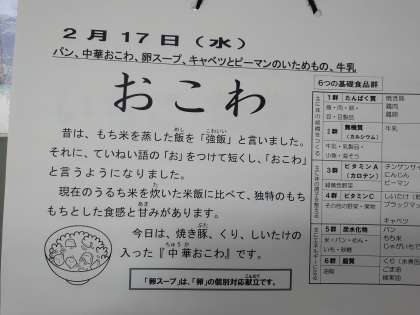 2月17日（水）
パン、中華おこわ、卵スープ、キャベツとピーマンのいためもの、牛乳
おこわ
昔は、もち米を蒸した飯を「強飯」と言いました。
それに、ていねい語の「お」をつけて短くし、「おこわ」
と言うようになりました。
現在のうるち米を炊いた米飯に比べて、独特のもち
もちとした食感と甘みがあります。
今日は、焼き豚、くり、しいたけの
入った『中華おこわ』です。
「卵スープ」は、「卵」の個別対応献立です。
6つの基礎食品群
1群 たんぱく質
魚・肉・卵・
豆・豆製品
焼き豚
鶏肉
鶏卵
2群 無機質
（カルシウム）
牛乳・乳製品・
小魚・海そう
牛乳
3群 ビタミンA
（カロテン）
緑黄色野菜
チンゲンサイ
にんじん
ピーマン
4群 ビタミンC
その他の野菜・果物
キャベツ
5群 炭水化物
米・パン・めん・
いも・砂糖
パン
もち米
6群 脂質
油脂
ごま油